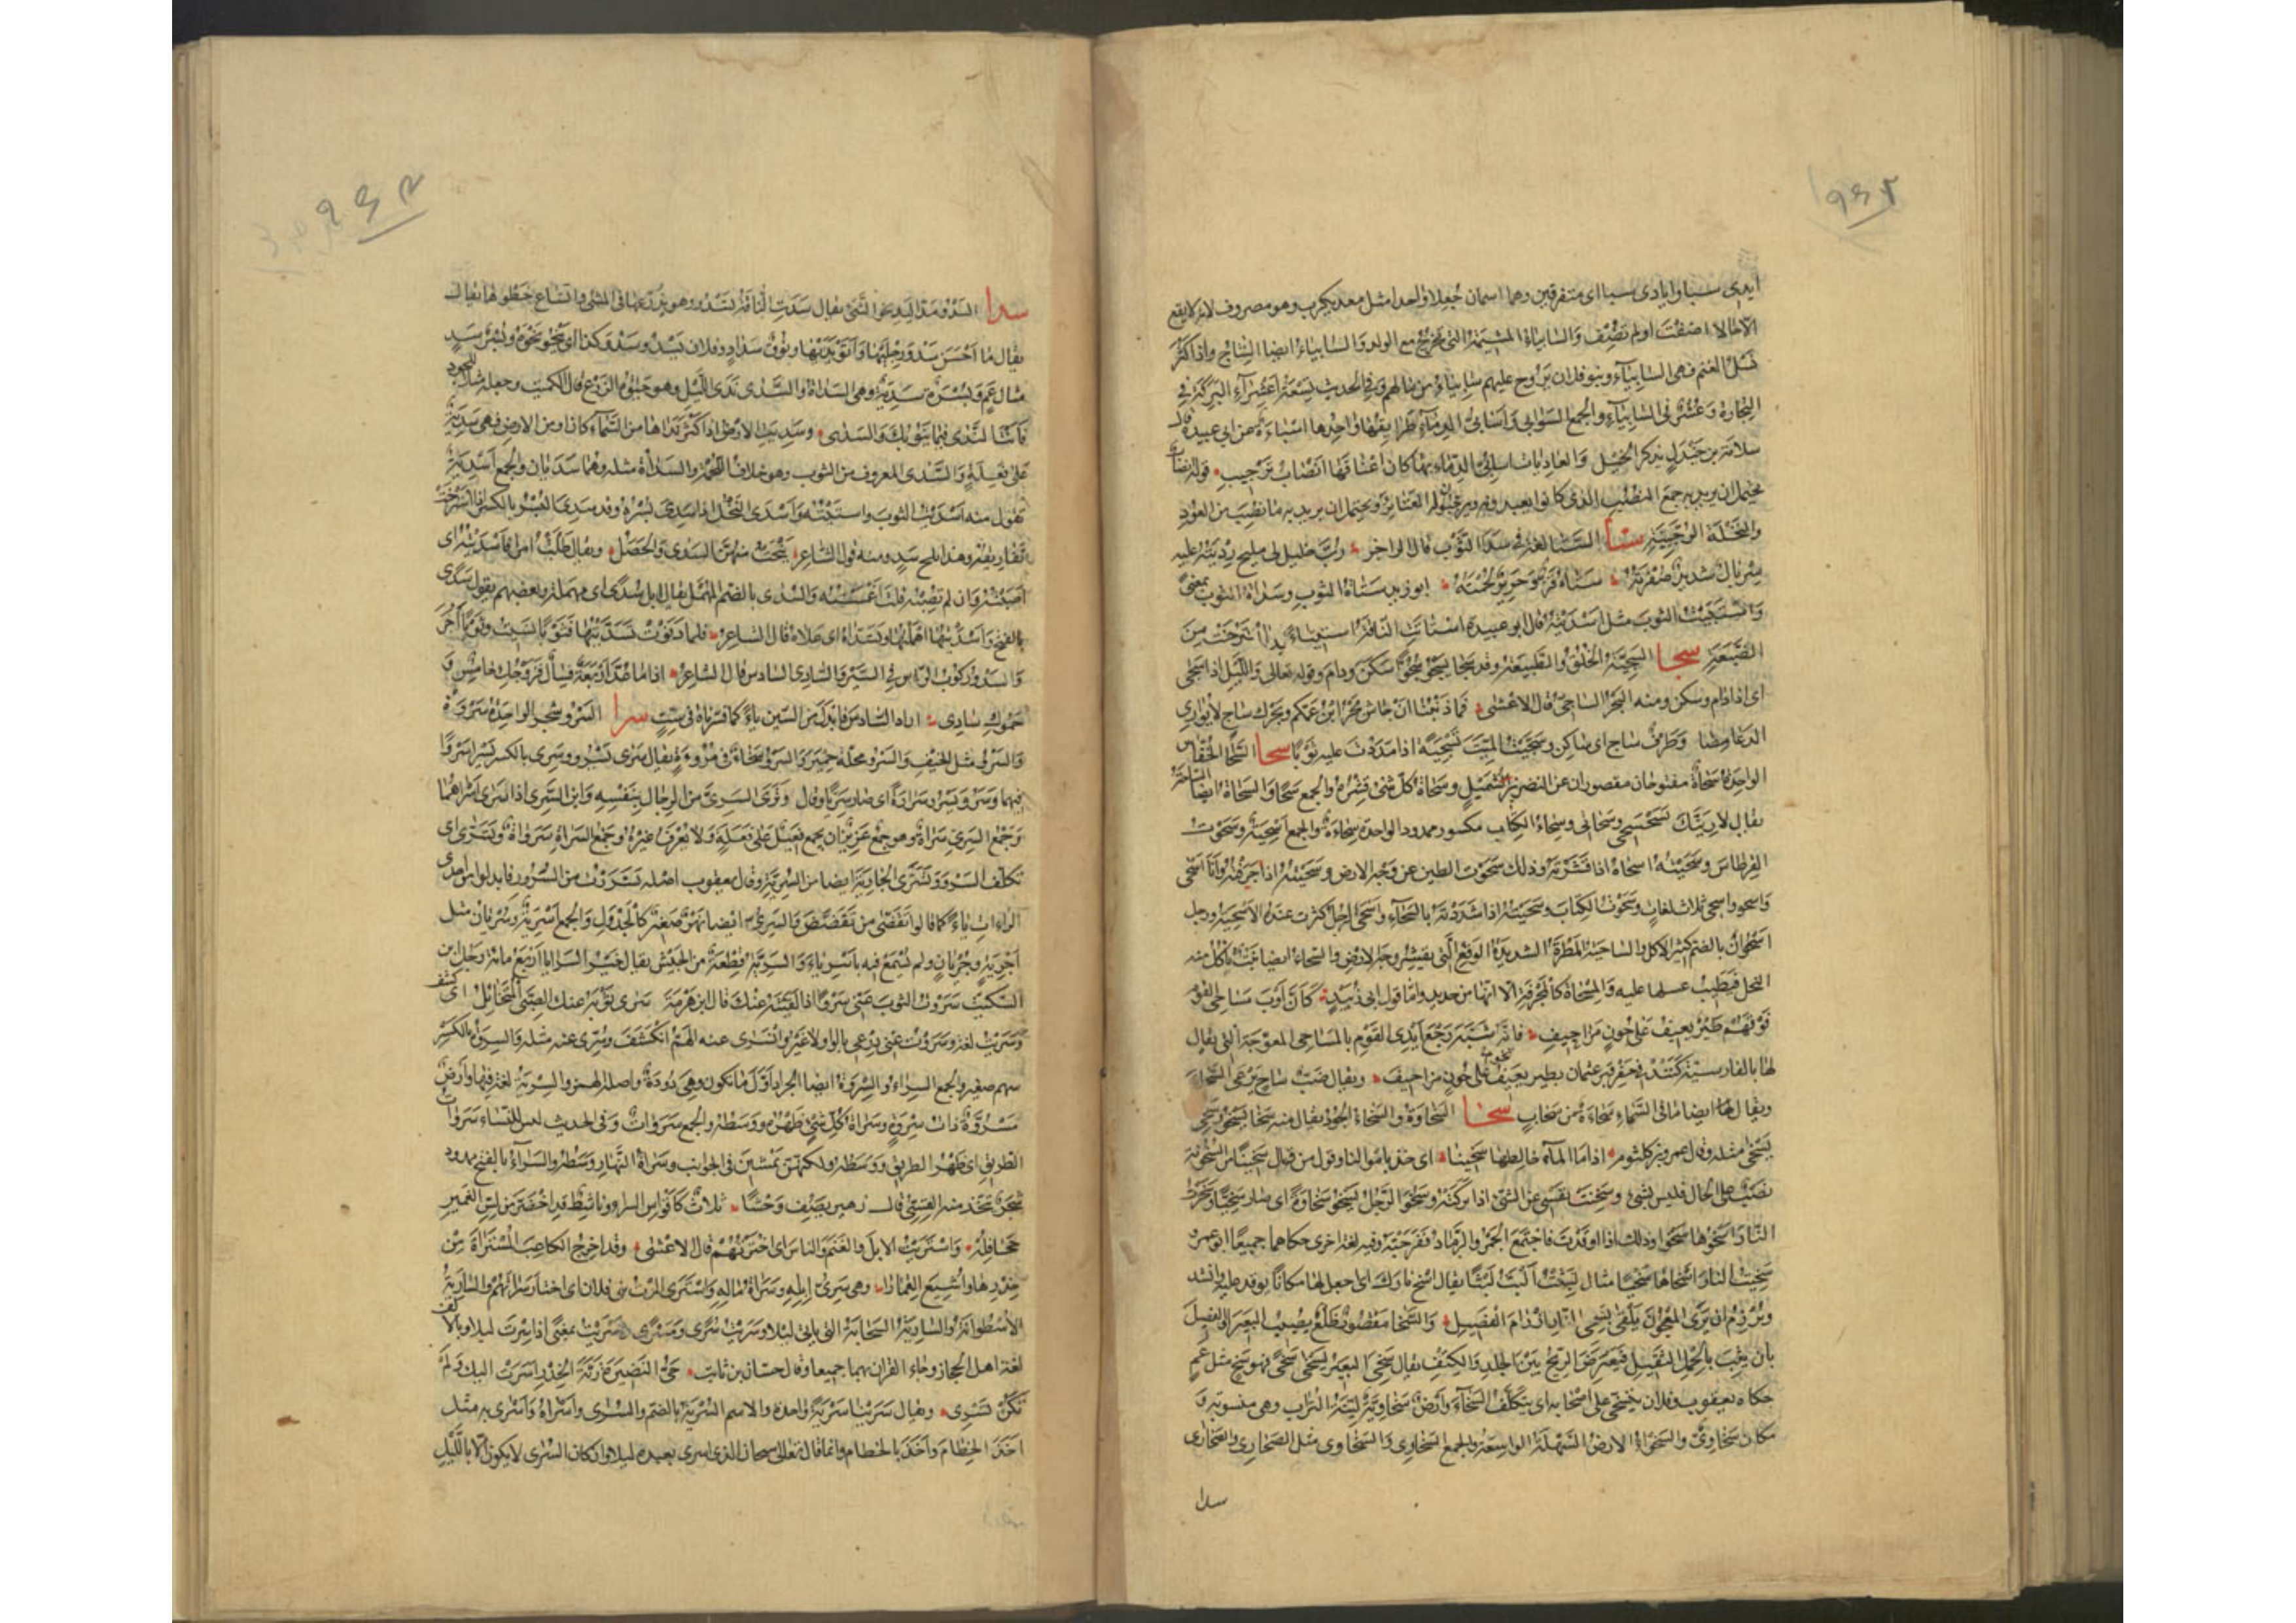 ٩٤٢
ايدى سبا وايادى سبا اى متفرقين وهما اسمان جعلا واحدا مثل معديكرب وهو مصروف لانه لا يقع
الا حالا اضفت او لم تضف والسابياء المشيمة التى تخرج مع الولد والسابياء ايضا النتاج واذا كثر
نسل الغنم فهى السابياء وبنو فلان تروح عليهم سابياء من مالهم وفى الحديث تسعة اعشراء البركة فى
التجارة وعشر فى السابياء والجمع السوابى واسابى الدماء طرايقها واحدها اسباءة عن ابى عبيدة قال
سلامة بن جندل يذكر الخيل والعاديات اسابى الدماء بها كان اعناقها انصاب ترجيب قوله انصاب
يحتمل ان يريد به جمع النصب الذى كانوا يعبدونه ويرجبون له العتائر ويحتمل ان يريد به ما نصب من العود
والنخلة الرجبية ستا الستا لغة فى سدا الثوب قال الراجز رب خليل لى مليح رديته عليه
سربال شديد صفرته ستاه قز وحرير لحمته ابو زيد ستاة الثوب وسداة الثوب بمعنى
واستيت الثوب مثل اسديته قال ابو عبيدة استاتت الناقة استيتاء اذا استرخت من
الضبعة سجا السجية الخلق والطبيعة وقد سجا يسجو سجوا سكن ودام وقوله تعالى والليل اذا سجى
اى اذا دام وسكن ومنه البحر الساجى قال الاعشى فما ذنبنا ان جاش بحر ابن عمكم وبحرك ساج لا يوارى
الدعامصا وطرف ساج اى ساكن وسجيت الميت تسجية اذا مددت عليه ثوبا سحا السحا الخفاش
الواحدة سحاة مفتوحان مقصوران عن النضر بن شميل وسحاة كل شئ قشره والجمع سحا والسحاة ايضا الساحة
يقال لا ارينك بسحسحى وسحاتى وسحاء الكتاب مكسور ممدود الواحدة سحاءة والجمع اسحية وسحوت
القرطاس وسحيته اسحاه اذا قشرته وكذلك سحوت الطين عن وجه الارض وسحيته اذا جرفته وانا اسحى
واسحو واسحى ثلاث لغات وسحوت الكتاب وسحيته اذا شددته بالسحاء واسحى الرجل كثرت عنده الاسحية ورجل
اسحوان بالضم كثير الاكل والساحية المطرة الشديدة الوقع التى تقشر وجه الارض والسحاء ايضا نبت تاكل منه
النحل فيطيب عسلها عليه والمسحاة كالمجرفة الا انها من حديد واما قول ابى زبيد كان اوب مساحى القوم
فوقهم طير تعيف على جون مزاحيف فانه شبه رجع ايدى القوم بالمساحى المعوجة التى يقال
لها بالفارسية كنند فى حفر قبر عثمان بطير تعيف على جون مزاحيف ويقال ضب ساح يرعى السحاء
ويقال لها ايضا ما فى السماء سحاءة من سحاب سخا السخاوة والسخاء الجود يقال منه سخا يسخو وسخى
يسخى مثله وقال عمرو بن كلثوم اذا ما الماء خالطها سخينا اى جدنا باموالنا وقول من قال سخينا من السخونة
نصب على الحال فليس بشئ وسخت نفسى عن الشئ اذا تركته وسخو الرجل يسخو سخاوة اى صار سخيا وسخوت
النار اسخوها سخوا وذلك اذا اوقدت فاجتمع الجمر والرماد ففرجته وفيه لغة اخرى حكاهما جميعا ابو عمرو
سخيت النار اسخاها سخيا مثال لبثت البث لبثا يقال اسخ نارك اى اجعل لها مكانا توقد عليه وانشد
ويرزم ان يرى المعجون يلقى بسخى النار ارزام الفصيل والسخا مقصور ظلع يصيب البعير او الفصيل
بان يثب بالحمل الثقيل فتعترض الريح بين الجلد والكتف يقال سخى البعير يسخى سخى فهو سخ مثل عم
حكاه يعقوب وفلان يتسخى على اصحابه اى يتكلف السخاء وارض سخاوية لينة التراب وهى منسوبة و
مكان سخاوى والسخواء الارض السهلة الواسعة والجمع السخاوى والسخاوى مثل الصحارى والصحارى
سدا
٩٤٣
سدا السدو مد اليد نحو الشئ يقال سدت الناقة تسدو وهو تذرعها فى المشى واتساع خطوها يقال
يقال ما احسن سدو رجليها واتو يديها ونوق سواد وفلان يسدو سدو كذا اى ينحو نحوه وبسر سد
مثال عم وبسرة سدية وهى السداء والسدى ندى الليل وهو حيوة الزرع قال الكميت وجعله مثلا للجود
فانت الندى فيما ينوبك والسدى وسديت الارض اذا كثر نداها من السماء كان او من الارض فهى سدية
على فعلة والسدى المعروف من الثوب وهو خلاف اللحمة والسداة مثله وهما سديان والجمع اسدية
تقول منه اسديت الثوب واستيته واسدى النخل اذا سدى بسره وقد سدى البسر بالكسر اذا استرخت
تفاريقه وهذا بلح سد ومنه قول الشاعر ينحت منهن السدى والحصل ويقال طلبت امرا فاسديته اى
اصبته وان لم تصبه قلت اغمسته والسدى بالضم المهمل يقال ابل سدى اى مهملة وبعضهم يقول سدى
بالفتح واسديتها اهملتها وتسداه اى علاه قال الشاعر فلما دنوت تسديتها فثوبا نسيت وثوبا اجر
والسدو ركوب الراس فى السير والسادى السادس قال الشاعر اذا ما عد اربعة فسال فزوجك خامس و
حموك سادى اراد السادس فابدل من السين ياء كما فسرناه فى ست سرا السرو شجر الواحدة سروة
والسرو مثل الخيف والسرو محلة حمير والسرو سخاء فى مروءة يقال سرى يسرو وسرى بالكسر يسرى سروا
فيهما وسرو يسرو سراوة اى صار سريا وقال وترى السرى من الرجال بنفسه وابن السرى اذا سرى اسراهما
وجمع السرى سراة وهو جمع عزيز ان يجمع فعيل على فعلة ولا يعرف غيره وجمع السراة سروات وتسرى اى
تكلف السرو وتسرى الجارية ايضا من السرية وقال يعقوب اصله تسررت من السرور فابدلوا من احدى
الراءات ياء كما قالوا تقضى من تقضض والسرى ايضا نهر صغير كالجدول والجمع اسرية وسريان مثل
اجربة وجربان ولم يسمع فيه باسرياء والسرية قطعة من الجيش يقال خير السرايا اربع مائة رجل ابن
السكيت سروت الثوب عنى سروا اذا القيته عنك قال ابن هرمة سرى ثوبه عنك الصبى المتخايل اى كشف
وسريت لغة وسروت عنى درعى بالواو لا غير وانسرى عنه الهم انكشف وسرى عنه مثله والسروة بالكسر
سهم صغير والجمع السراء والسروة ايضا الجراد اول ما تكون وهى دودة واصله الهمز والسرية لغة فيها وارض
مسروة ذات سروة وسراة كل شئ ظهره ووسطه والجمع سروات وفى الحديث ليس للنساء سروات
الطريق اى ظهر الطريق ووسطه ولكنهن يمشين فى الجوانب وسراة النهار وسطه والسراء بالفتح ممدود
شجر تتخذ منه القسى قال زهير يصف وحشا ثلاث كاقواس السراء وناشط قد اخضر من لس الغمير
جحافله واستريت الابل والغنم والناس اى اخترتهم قال الاعشى وقد اخرج الكاعب المستراة من
خدرها واشيع القمارا وهى سرى ابله وسراة ماله واسترى الموت بنى فلان اى اختار سراتهم والسارية
الاسطوانة والسارية السحابة التى تاتى ليلا وسريت سرى ومسرى واسريت بمعنى اذا سرت ليلا وبالالف
لغة اهل الحجاز وجاء القران بهما جميعا وقال حسان بن ثابت حى النضيرة ربة الخدر اسرت اليك ولم
تكن تسرى ويقال سرينا سرية واحدة والاسم السرية بالضم والسرى واسراه واسرى به مثل
اخذ الخطام واخذ بالخطام وانما قال تعالى سبحان الذى اسرى بعبده ليلا وان كان السرى لا يكون الا بالليل